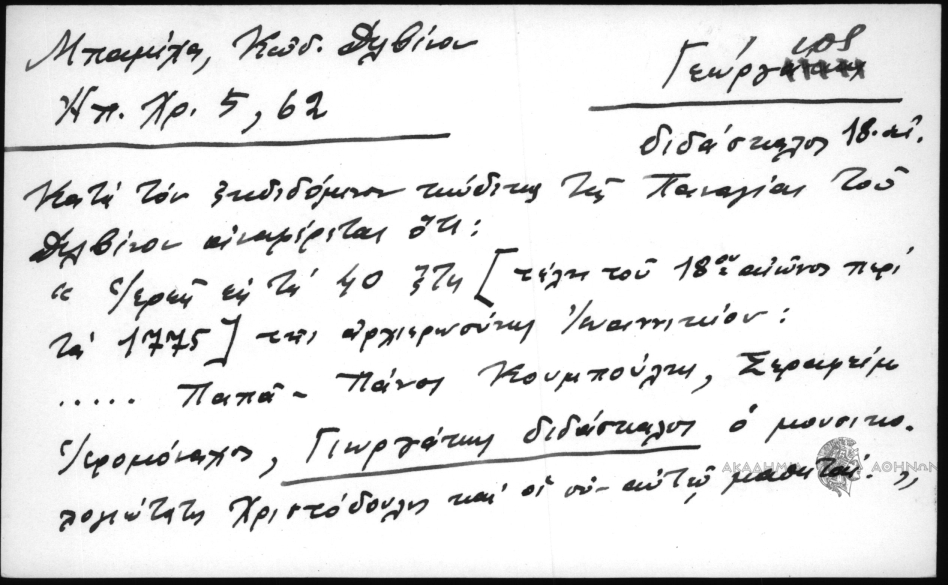 Μπαμίχα, Κώδ. Δελβίνου
Ηπ. Χρ. 5, 62
Γεώργιος
διδάσκαλος 18. αἰ.
Κατά τόν ἐκδιδόμενον κώδικα τῆς Παναγίας τοῦ
Δελβίνου ἀναφέρεται ὅτι:
" εἰς τά 40 ἔτη [τέλη τοῦ 18ου αἰῶνος περί
τά 1775] τῆς ἀρχιερωσύνης Ἰωαννικίου:
..... Παπᾶ - Πάνος Κουμπούλης, Σεραφείμ
Ἱερομόναχος, Γιωργάκης διδάσκαλος ὁ μουσικο-
λογιώτατος Χριστόδουλος καί οἱ σύν αὐτῷ μαθηταί. "
ΑΚΑΔΗΜΙΑ ΑΘΗΝΩΝ